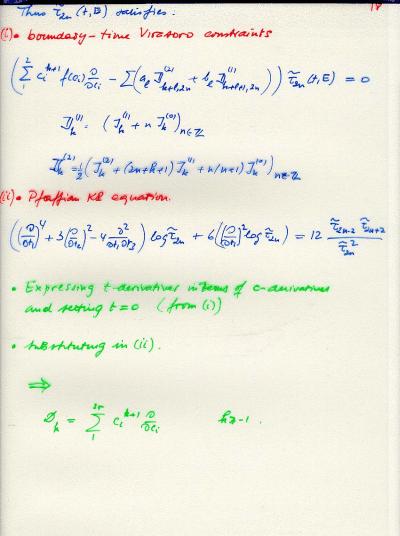 Thus τ̃₂ₙ(t,E) satisfies:
(i) • boundary-time Virasoro constraints
(∑₁² cᵢᵏ⁺¹ f(cᵢ) ∂/∂cᵢ − ∑(aₗ 𝕁⁽²⁾ₖ₊ₗ,₂ₙ + bₗ 𝕁⁽¹⁾ₖ₊ₗ₊₁,₂ₙ)) τ̃₂ₙ(t,E) = 0
𝕁ₖ⁽¹⁾ = (Jₖ⁽¹⁾ + n Jₖ⁽⁰⁾)ₙ∈ℤ
𝕁ₖ⁽²⁾ = ½(Jₖ⁽²⁾ + (2n+k+1) Jₖ⁽¹⁾ + n(n+1) Jₖ⁽⁰⁾)ₙ∈ℤ
(ii) • Pfaffian KP equation.
((∂/∂t₁)⁴ + 3(∂/∂t₂)² − 4 ∂²/∂t₁∂t₃) log τ̃₂ₙ + 6((∂/∂t₁)² log τ̃₂ₙ)² = 12 τ̃₂ₙ₋₂ τ̃₂ₙ₊₂ / τ̃₂ₙ²
• Expressing t-derivatives in terms of c-derivatives
and setting t=0 (from (i))
• substituting in (ii).
⟹
𝒟ₖ = ∑₁²ʳ cᵢᵏ⁺¹ ∂/∂cᵢ k≥-1.